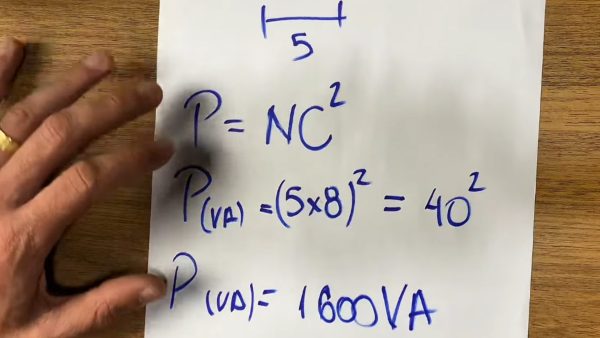 5
P = NC²
P(VA) = (5x8)² = 40²
P(VA) = 1600VA